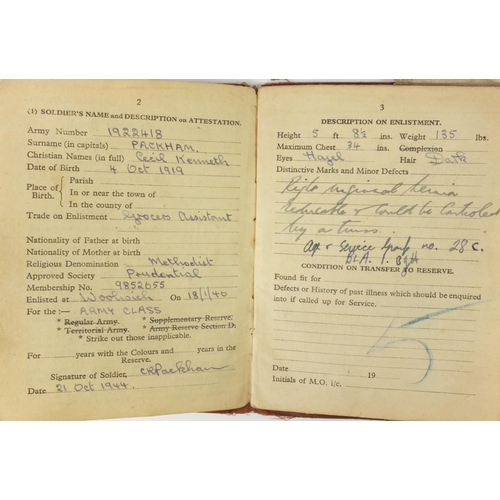 2
(1) SOLDIER'S NAME and DESCRIPTION on ATTESTATION.
Army Number 1922418
Surname (in capitals) PACKHAM.
Christian Names (in full) Cecil Kenneth
Date of Birth 4 Oct 1919
Place of Birth.
Parish
In or near the town of
In the county of
Trade on Enlistment Grocers Assistant
Nationality of Father at birth
Nationality of Mother at birth
Religious Denomination Methodist
Approved Society Prudential
Membership No. 9852655
Enlisted at Woolwich On 18/1/40
For the :— ARMY CLASS
* Regular Army. * Supplementary Reserve.
* Territorial Army. * Army Reserve Section D.
* Strike out those inapplicable.
For years with the Colours and years in the
Reserve.
Signature of Soldier, CKPackham
Date 21 Oct 1944.
3
DESCRIPTION ON ENLISTMENT.
Height 5 ft 8½ ins. Weight 135 lbs.
Maximum Chest 34 ins. Complexion
Eyes Hazel Hair Dark
Distinctive Marks and Minor Defects
inguinal hernia
reducible & could be controlled
by a truss.
Age & Service Group no. 28 C.
CONDITION ON TRANSFER TO RESERVE.
Found fit for
Defects or History of past illness which should be enquired
into if called up for Service.
5
Date 19
Initials of M.O. i/c.